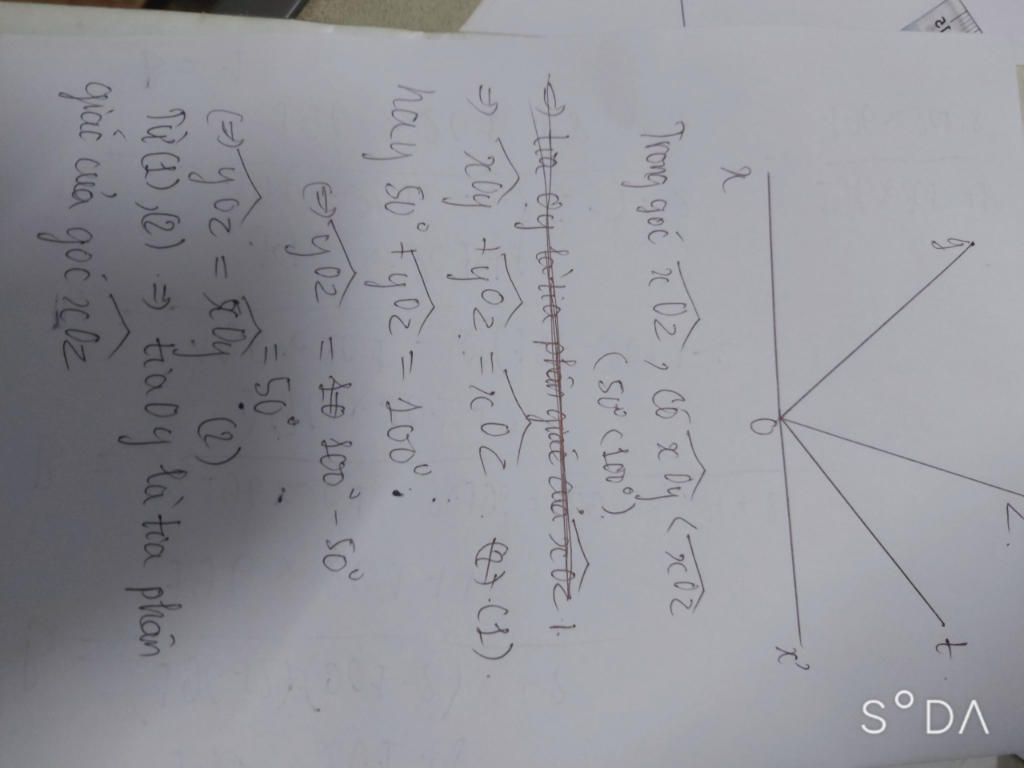 x
y
z
t
x'
O
Trong góc xOz, có xOy < xOz
(50° < 100°).
=> tia Oy là tia phân giác của xOz.
=> xOy + yOz = xOz. (1).
hay 50° + yOz = 100°
(=) yOz = 100° - 50°
= 50°
(=) yOz = xOy (2)
Từ (1), (2) => tia Oy là tia phân
giác của góc xOz
S°DA